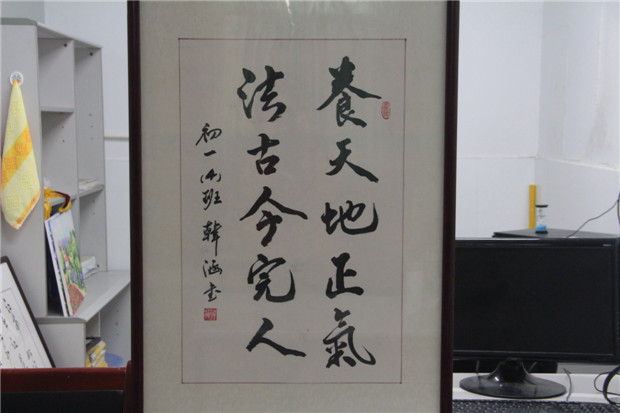 養天地正氣
法古今完人
初一(4)班 韓涵书